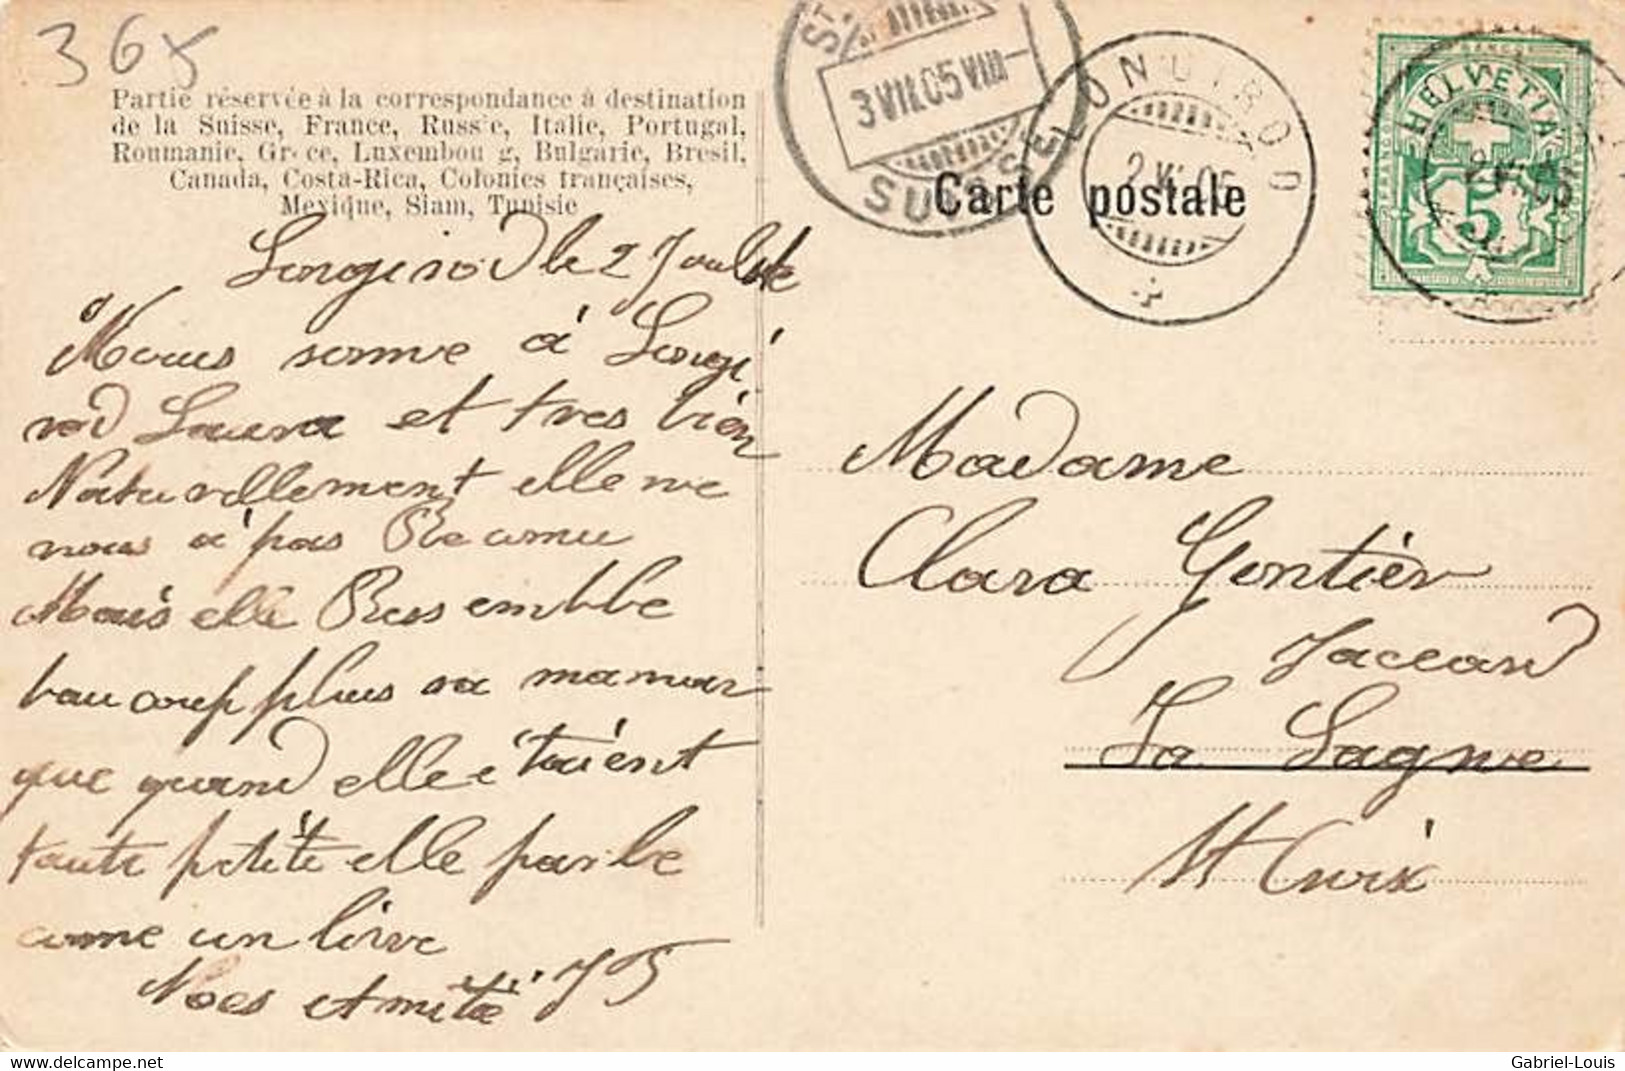 365
Partie réservée à la correspondance à destination
de la Suisse, France, Russie, Italie, Portugal,
Roumanie, Grèce, Luxembourg, Bulgarie, Bresil,
Canada, Costa-Rica, Colonies françaises,
Mexique, Siam, Tunisie
Carte postale
3 VII.05 VIII
SUISSE
LONGIROD
2 VII 05
HELVETIA
5
Longirod le 2 Joulite
Nous somme à Longi
rod Laura et tres bien
Naturellement elle ne
nous a pas Reconnu
Mais elle Ressemble
baucoup plus sa maman
que quand elle étaient
toute petite elle parle
come un livre
Noes et mité JB
Madame
Clara Gontier
Jaccard
La Sagne
St Croix
delcampe.net
Gabriel-Louis